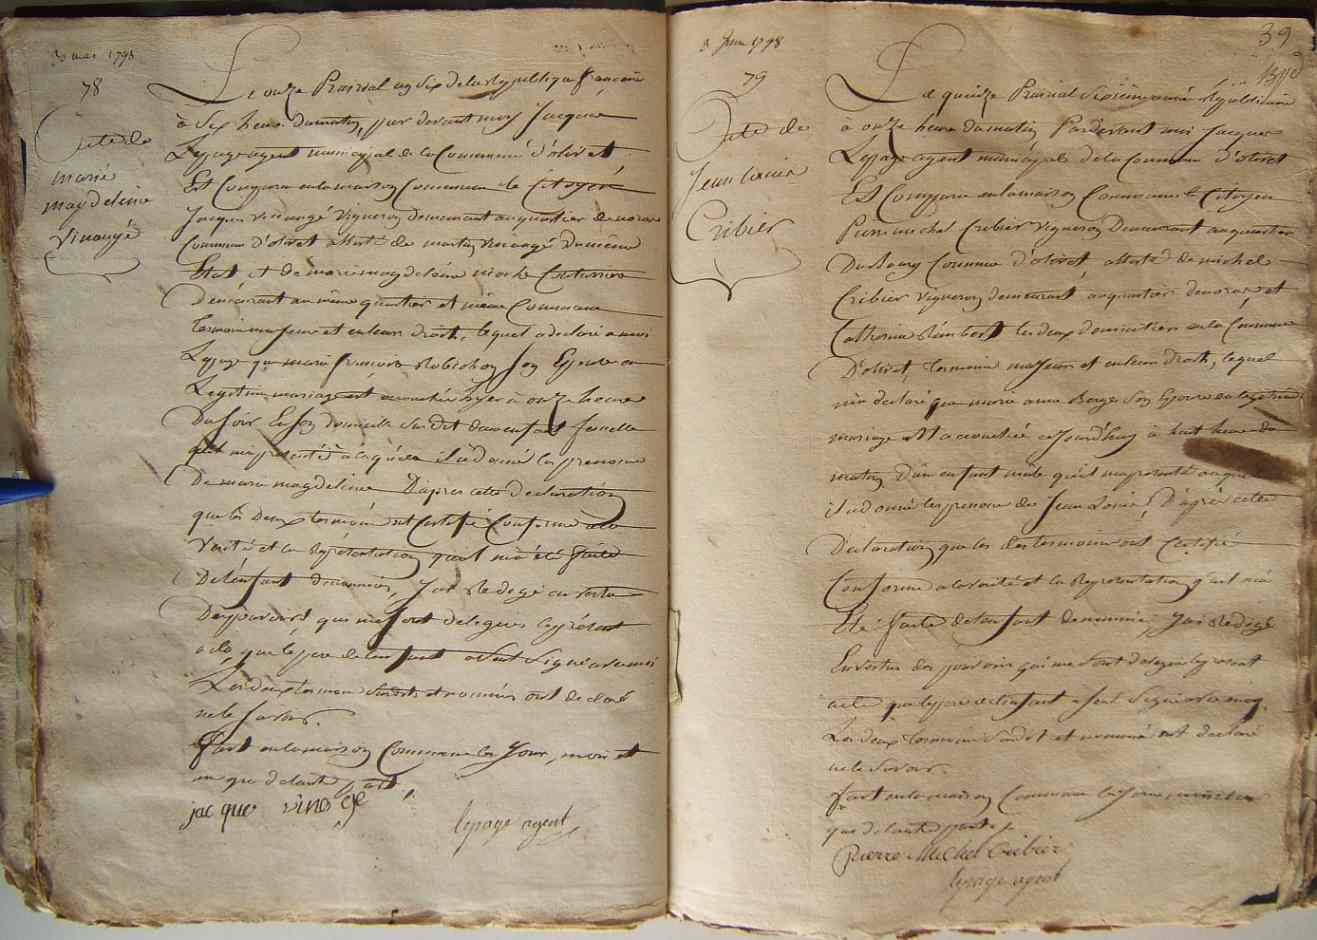 30 mai 1798
78
acte de
marie
magdeleine
Vinangé
Le onze Prairial an Six de la République française
à Six heures du matin, par devant moy Jacques
Lepage agent municipal de la Commune d'olivet
Est Comparu en la maison Commune le Citoyen
Jacques vinangé vigneron demeurant au quartier de
Commune d'olivet assisté de martin vinangé du même
Etat et de marie magdeleine
demeurant au même quartier et même Commune
temoins majeurs et en leurs droits, lequel a declaré a moi
Lepage que marie françoise Robichon Son Epouse en
Legitime mariage est accouchée hyer à onze heures
Du soir En son domicile Sus dit d'un enfant femelle
qu'il m'a présenté à laquelle il a donné les prenoms
De marie magdeleine D'après cette declaration
que les Deux temoins ont Certifié Conforme a la
Vérité et la Représentation qui m'a été faite
De l'enfant denommé, J'ai Redigé en vertu
Des pouvoirs qui me sont delegués le présent
acte que le pere de l'enfant a Seul Signé avec moi
Les deux temoins Susdits et nommés ont declaré
ne le savoir.
fait en la maison Commune les Jour, mois et
an que d'autre part.
jacque vinagé
lepage agent
39
3 Juin 1798
79
acte de
Jean Louis
Cribier
Le quinze Prairial Sixieme année Républicaine
à onze heures du matin Pardevant moi Jacques
Lepage agent municipal de la Commune d'olivet
Est Comparu en la maison Commune le Citoyen
Pierre michel Cribier vigneron Demeurant au quartier
Du Bourg Commune d'olivet, assisté de michel
Cribier vigneron demeurant au quartier et
Catherine Rimbert les deux domiciliés en la Commune
D'olivet, temoins majeurs et en leurs droits, lequel
m'a declaré que marie anne Berger Son Epouse en legitime
mariage est accouchée ce Jourd'huy à huit heures du
matin D'un enfant mâle qu'il m'a présenté auquel
il a donné les prenoms de Jean Louis, D'après cette
Declaration que les temoins ont Certifié
Conforme a la vérité et la Représentation qui m'a
été faite de l'enfant denommé, J'ai Redigé
En vertu des pouvoirs qui me sont delegués le present
acte que le pere de l'enfant a Seul Signé avec moy.
Les deux temoins Susdits et nommés ont declaré
ne le savoir.
fait en la maison Commune les Jour, mois et an
que d'autre part.
Pierre Michel Cribier
lepage agent